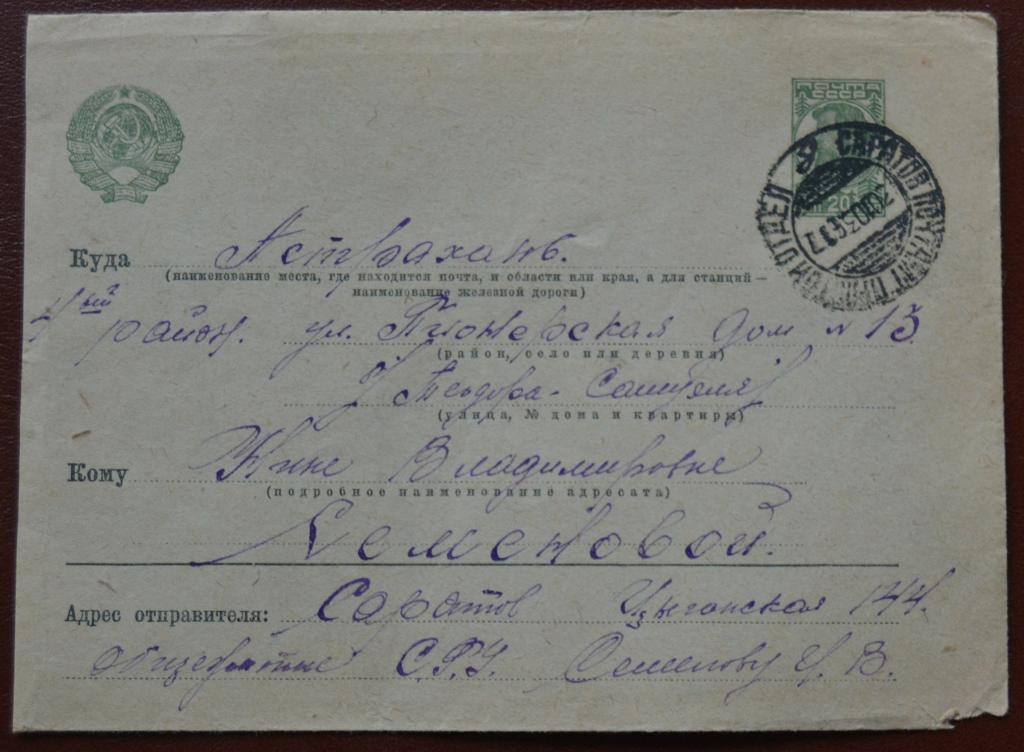 ПОЧТА
СССР
20
САРАТОВ ПОЧТАМТ
Куда Астрахань.
(наименование места, где находится почта, и области или края, а для станций —
наименование железной дороги)
4ый район. ул. Пионерская дом № 13
(район, село или деревня)
(улица, № дома и квартиры)
Кому Нине Владимировне
(подробное наименование адресата)
Семеновой.
Адрес отправителя: Саратов Цыганская 144.
общежитие С.Р.У. Семенову В.